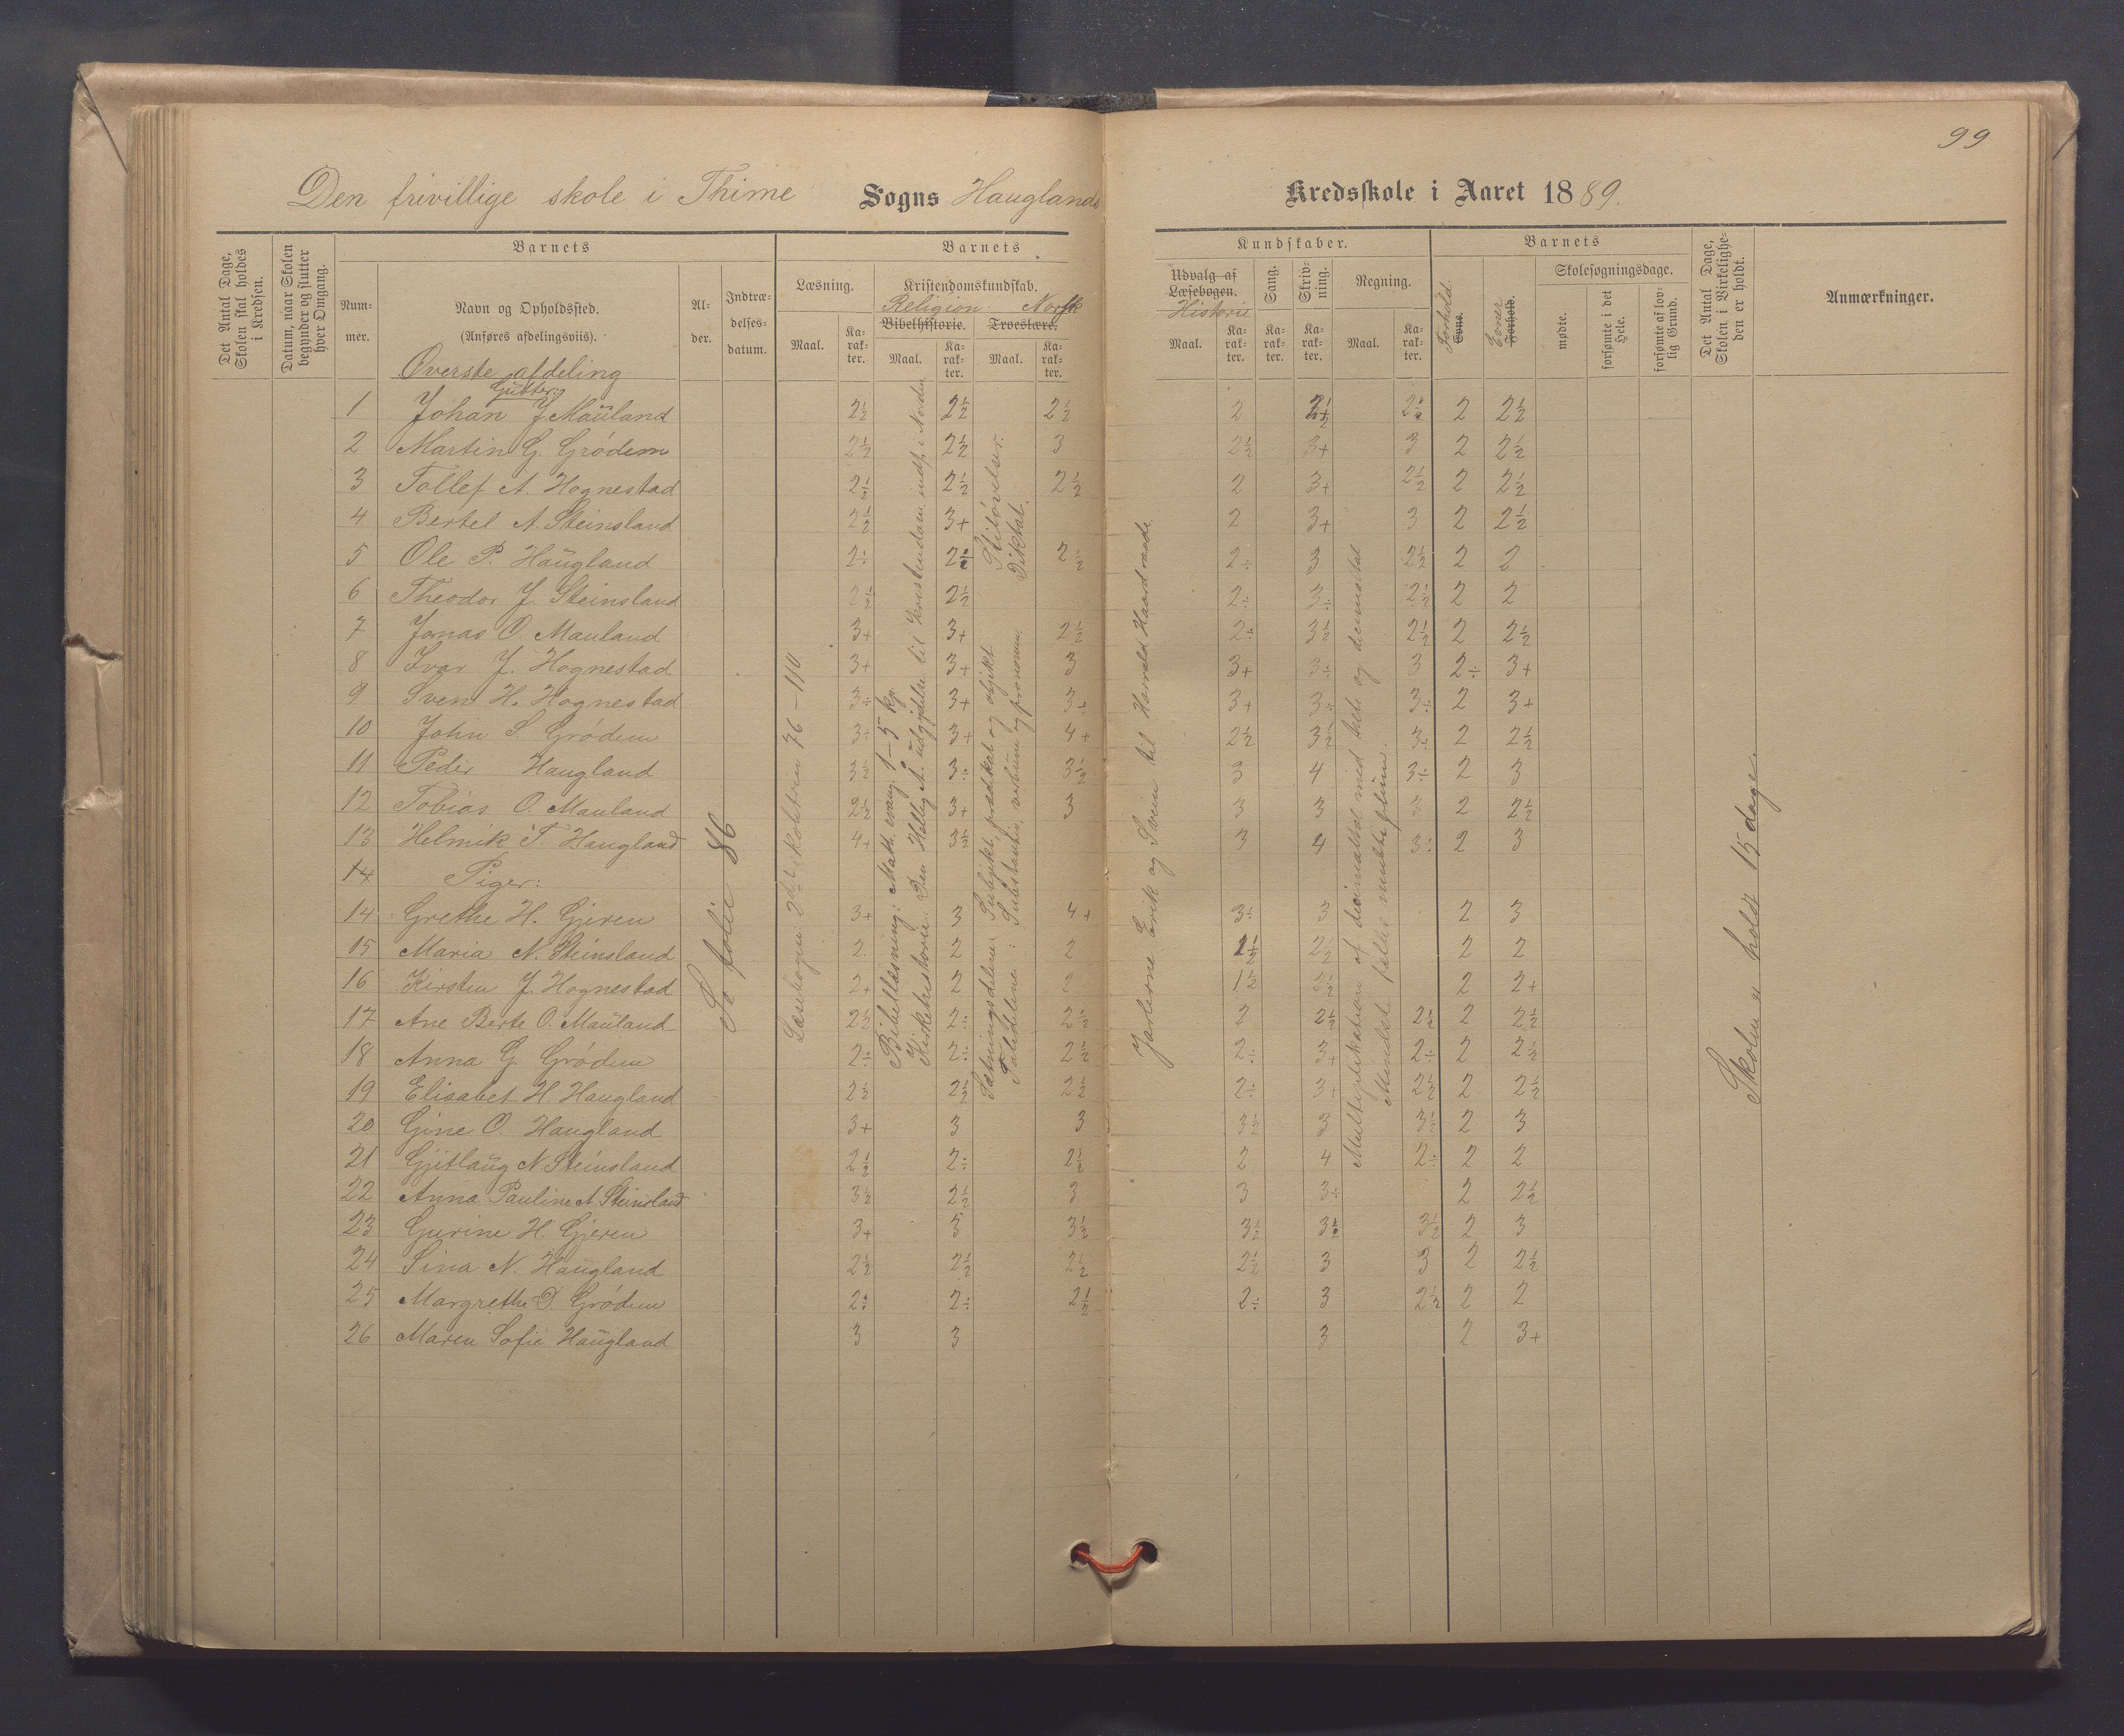 99
Den frivillige skole i Thime Sogns Hauglands Kredsskole i Aaret 1889.
Det Antal Dage, Skolen skal holdes i Kredsen.
Datum, naar Skolen begynder og slutter hver Omgang.
Barnets
Nummer.
Navn og Opholdssted.
(Anføres afdelingsviis).
Alder.
Indtrædelsesdatum.
Barnets
Læsning.
Maal.
Karakter.
Kristendomskundskab.
Religion. Norsk
Bibelhistorie. Troeslære.
Maal. Karakter. Maal. Karakter.
Kundskaber.
Udvalg af Læsebogen.
Historie
Maal. Karakter.
Sang.
Karakter.
Skrivning.
Karakter.
Regning.
Maal. Karakter.
Barnets
Forhold.
Evne.
Evner
Forhold.
Skolesøgningsdage.
mødte.
forsømte i det Hele.
forsømte af lovlig Grund.
Det Antal Dage, Skolen i Virkeligheden er holdt.
Anmærkninger.
Øverste afdeling
Gutter:
1 Johan J. Mauland 2½ 2½ 2½ 2 2½ 2½ 2 2½
2 Martin G. Grødem 2½ 2½ 3 2½ 3+ 3 2 2½
3 Tollef A. Hognestad 2½ 2½ 2½ 2 3+ 2½ 2 2½
4 Bertel A. Steinsland 2½ 3+ 2 3+ 3 2 2½
5 Ole P. Haugland 2÷ 2½ 2½ 2÷ 3 2½ 2 2
6 Theodor J. Steinsland 2½ 2½ 2÷ 3÷ 2½ 2 2
7 Jonas O. Mauland 3+ 3+ 2½ 2÷ 3½ 2½ 2 2½
8 Ivar J. Hognestad 3+ 3+ 3 3+ 3÷ 3 2÷ 3+
9 Sven H. Hognestad 3÷ 3+ 3+ 3+ 3÷ 3÷ 2 3+
10 John S. Grødem 3÷ 3+ 4+ 2½ 3½ 3÷ 2 2½
11 Peder Haugland 3½ 3÷ 3½ 3 4 3÷ 2 3
12 Tobias O. Mauland 2½ 3+ 3 3 3 3 2 2½
13 Helmik T. Haugland 4+ 3½ 3 4 3÷ 2 3
14 Piger:
14 Grethe H. Gjeren 3+ 3 4+ 3÷ 3 2 3
15 Maria N. Steinsland 2 2 2 1½ 2½ 2 2
16 Kirsten J. Hognestad 2+ 2 2 1½ 2½ 2 2+
17 Ane Berte O. Mauland 2½ 2÷ 2½ 2 2½ 2½ 2 2½
18 Anna G. Grødem 2÷ 2÷ 2½ 2÷ 3+ 2÷ 2 2½
19 Elisabet H. Haugland 2½ 2½ 2½ 2÷ 3+ 2½ 2 2½
20 Gine O. Haugland 3+ 3 3 3½ 3 3½ 2 3
21 Gjitlaug N. Steinsland 2½ 2÷ 2½ 2 4 2÷ 2 2
22 Anna Pauline A. Steinsland 3½ 2½ 3 3 3÷ 2 2½
23 Gurine H. Gjeren 3+ 3 3½ 3½ 3½ 3½ 2 3
24 Sina N. Haugland 2½ 2½ 2½ 2½ 3 3 2 2½
25 Margrethe D. Grødem 2÷ 2÷ 2½ 2÷ 3 2½ 2 2
26 Maren Sofie Haugland 3 3 3 2 3+
Se folie 86
Læsebogen: 2det skoletrin 76–110
Bibellæsning: Math. evang. 1–5 kp.
Kirkehistorie: Den Hellig A. udgydelse til kristendom. indf. i Norden
Stiløvelser.
Diktat.
Sætningsdelene: Subjekt, prædikat og objekt
Taledelene: Substantiv, verbum og pronomen.
Jarlerne Erik og Svein til Harald Haardraade.
Multiplikation af decimaltal med hele og decimaltal
Mindste fælles multiplum.
Skolen er holdt 15 dage.